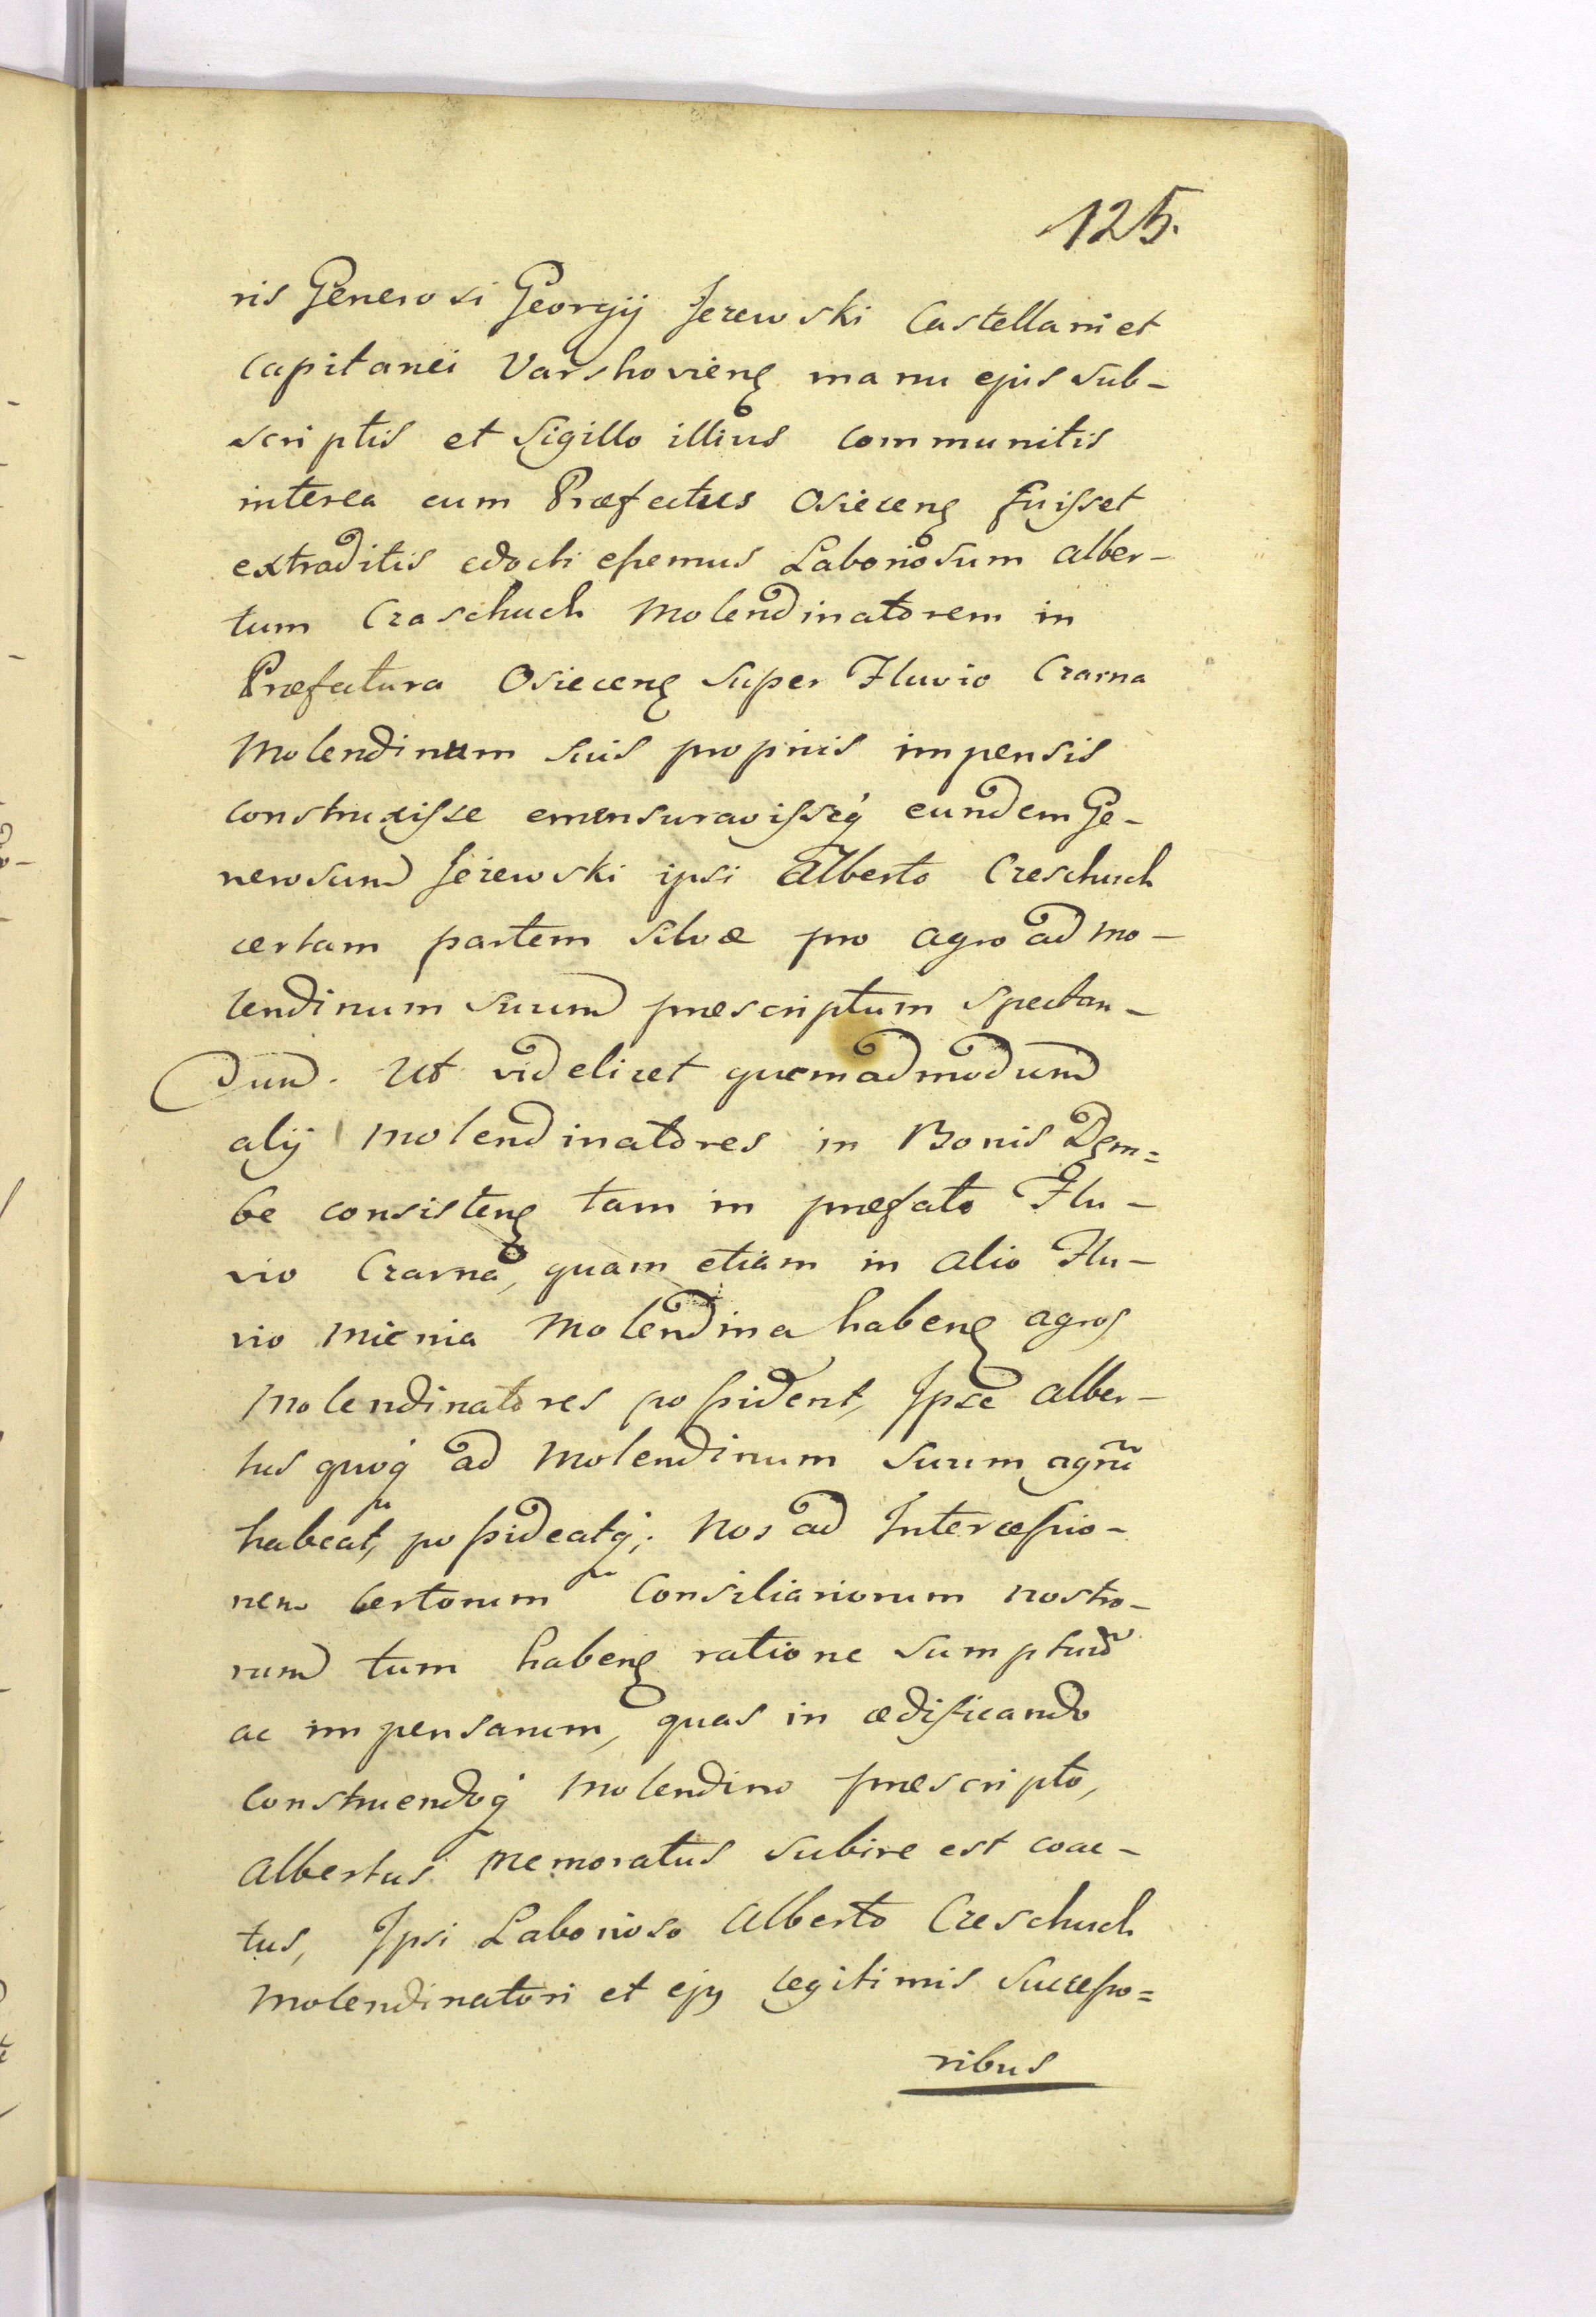 125.
ris Generosi Georgij Jezewski Castellani et
Capitanei Varshovienȩ manu ejus sub-
scriptis et Sigillo illius communitis
interea cum Præfectus Osiecenȩ fuisset
extraditis edocti essemus Laboriosum Alber-
tum Czaschuch Molendinatorem in
Præfectura Osiecenȩ super Fluvio Czarna
Molendinum suis propriis impensis
construxisse emensuravisseq́ eundem Ge-
nerosum Jezewski ipsi Alberto Czeschuch
certam partem silvæ pro agro ad Mo-
lendinum suum præscriptum spectan-
dum. Ut videlicet quemadmodum
alij Molendinatores in Bonis Dem=
be consistenȩ tam in præfato Flu-
vio Czarna, quam etiam in alio Flu-
vio Mienia Molendina habenȩ agros
Molendinatores possident, Ipse Alber-
tus quoq́ ad Molendinum suum agrũ
habeat, possideatq́; Nos ad Intercessio-
nem Certorum Consiliariorum nostro-
rum tum habenȩ ratione sumptuũ
ac impensarum, quas in ædificando
construendoq́ Molendino præscripto,
Albertus memoratus subire est coac-
tus, Ipsi Laborioso Alberto Czeschuch
Molendinatori et ejus legitimis Successo=
ribus